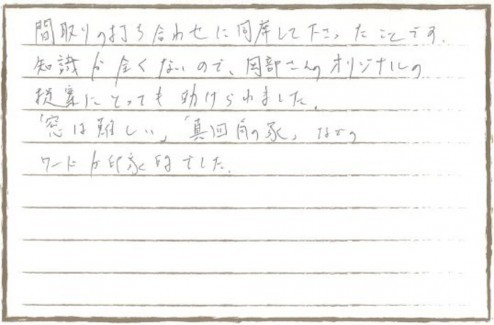 間取りの打ち合わせに同席して下さったことです。
知識が全くないので、岡部さんのオリジナルの
提案にとっても助けられました。
「窓は難しい」、「真四角の家」などの
ワードが印象的でした。